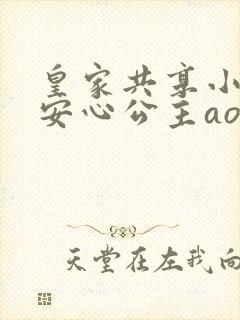 皇家共享小
安心公主ao
天堂在左我向